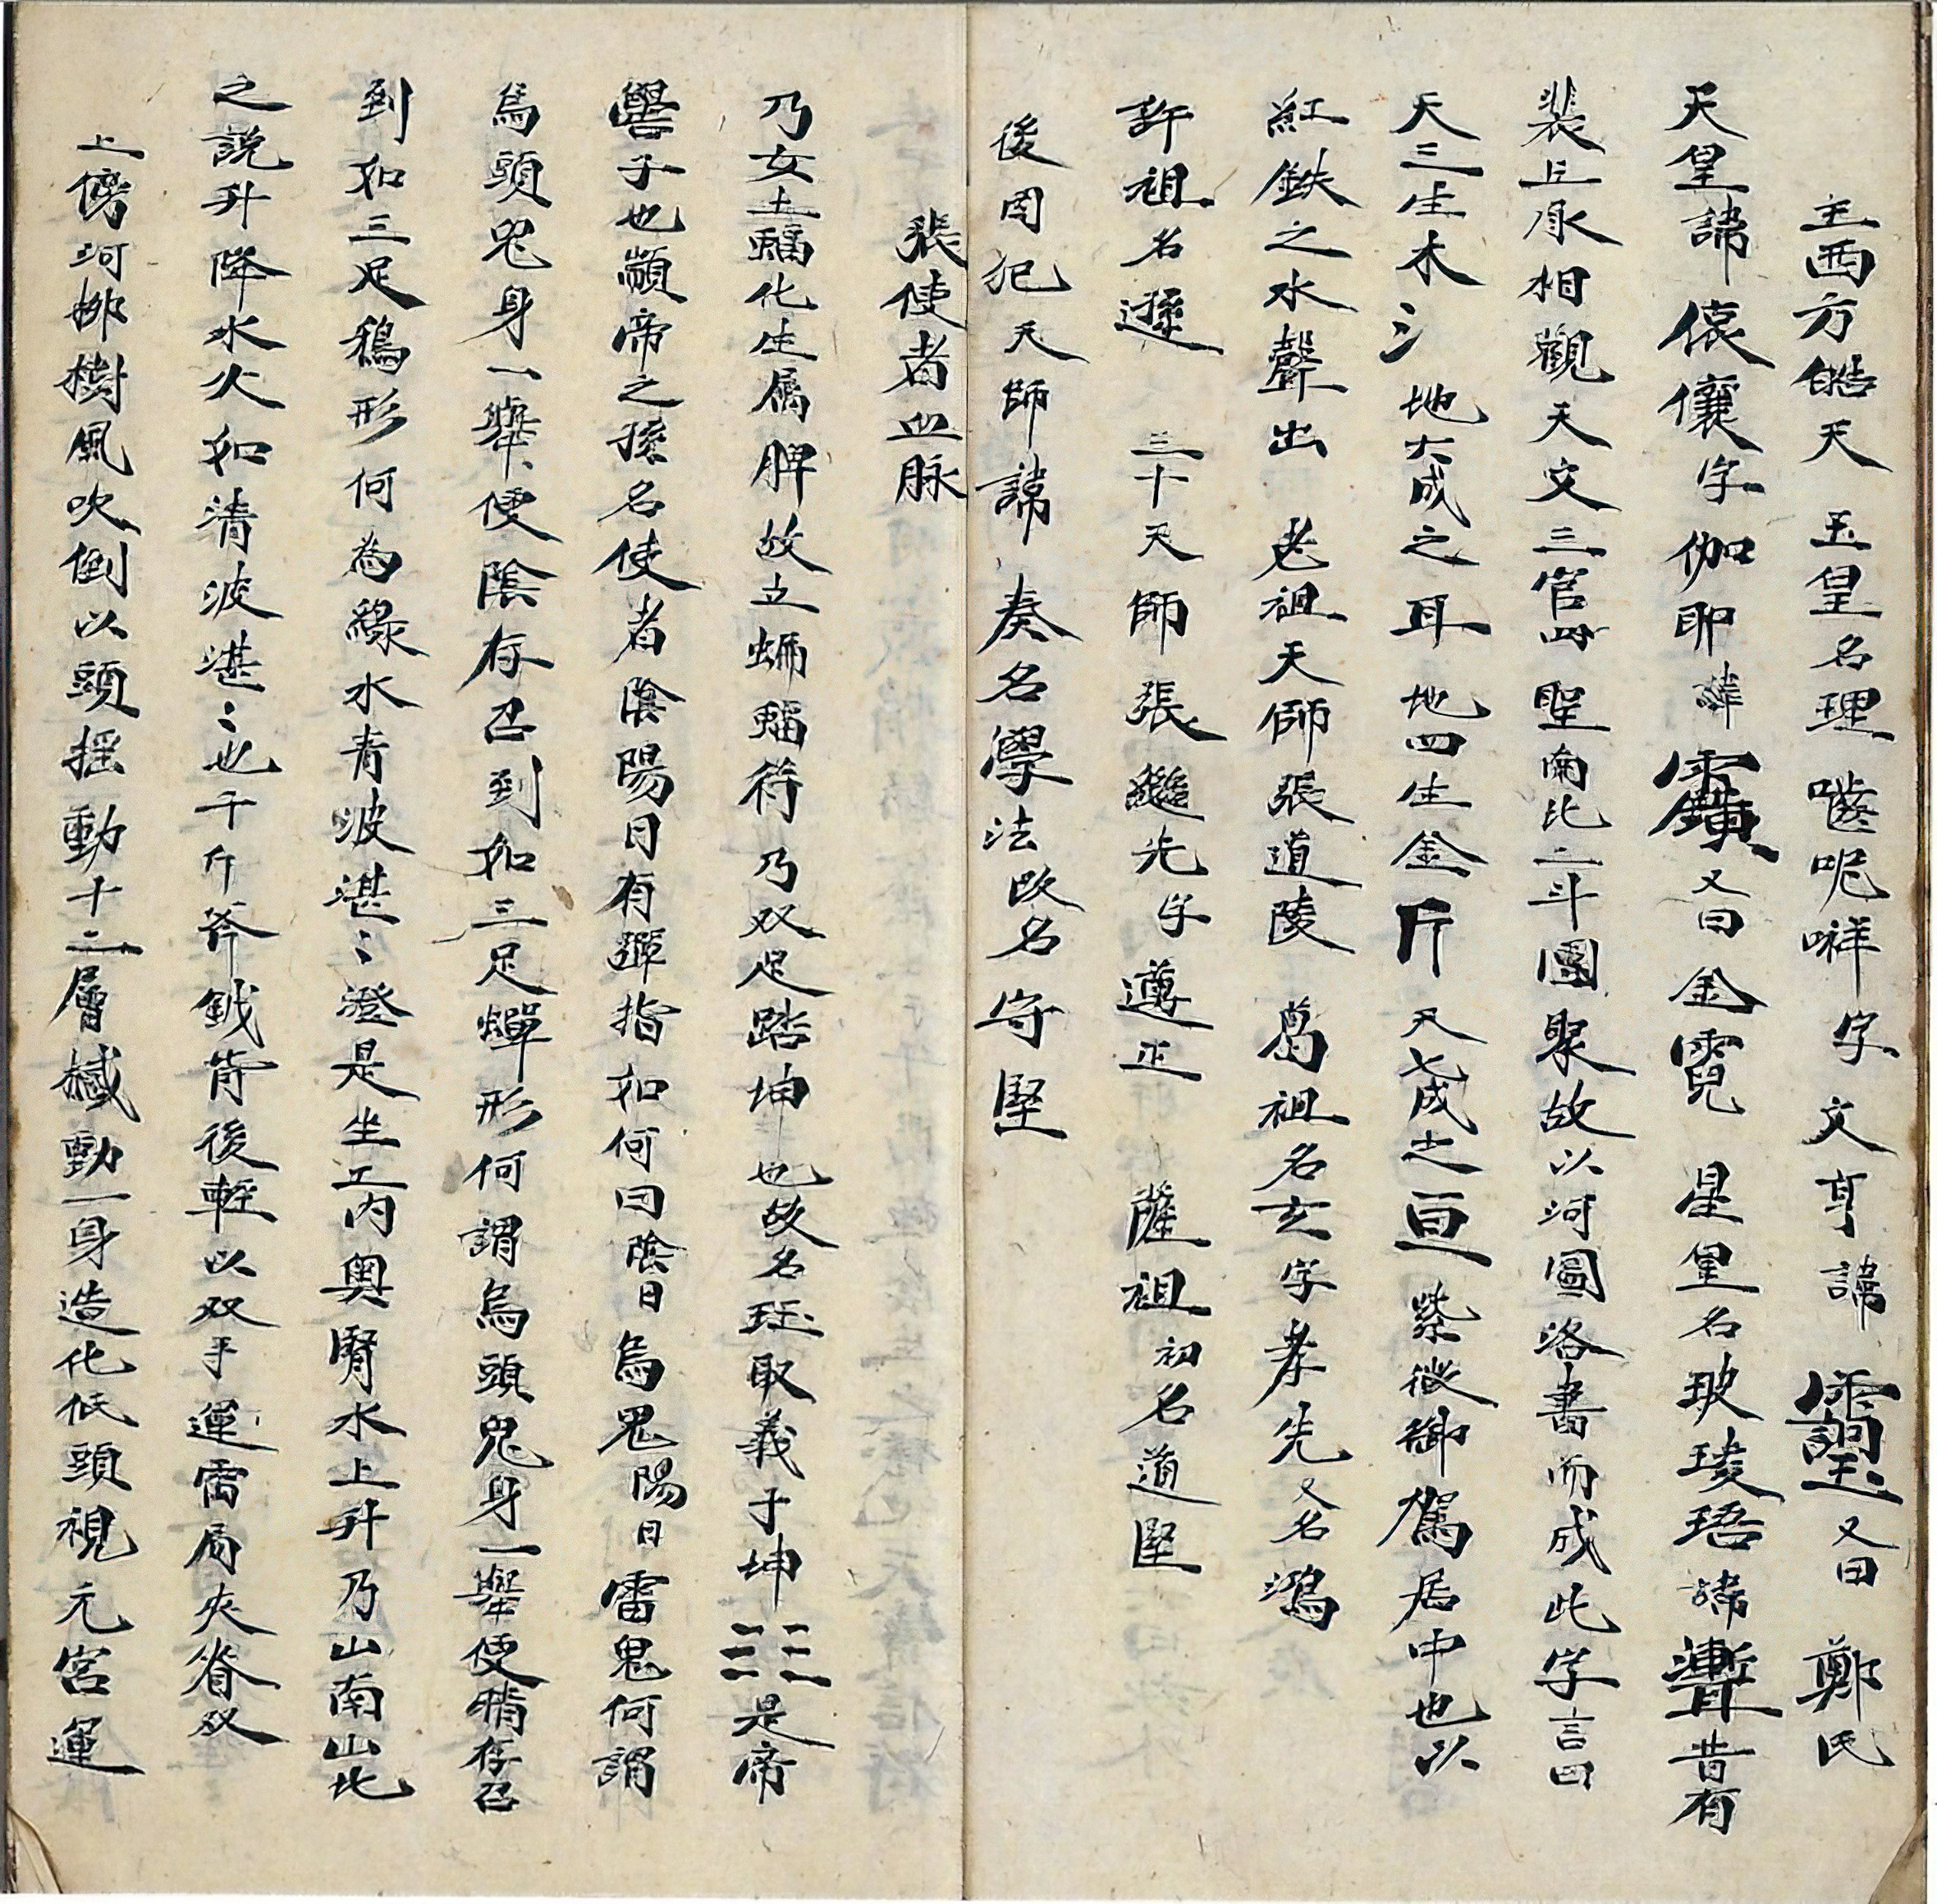 主西方皓天 玉皇名理 嚙呢㖦字 文享諱 又曰 鄭氏
天皇諱 儴字 伽耶諱 又曰 金霓 星皇名玻㻏珸諱 昔有
裴丘承相觀天文三官四聖南北二斗團聚故以河圖洛書而成此字言四
天三生木氵地六成之耳地四生金斤天七成之亘紫微御駕居中也以
紅鉄之水聲出 老祖天師張道陵 葛祖名玄字孝先又名鴻
許祖名遜 三十天師張繼先字遵正 薩祖初名道堅
後因犯天師諱奏名學法改名守堅
張使者血脉
乃女土蝠化生属脾故立蝙蝠符乃双足踏坤也故名珏取義于坤☷是帝
嚳子也顓帝之孫名使者陰陽日有蟬指如何曰陰日烏鬼陽日雷鬼何謂
烏頭鬼身一舉便陰存召到如三足蟬形何謂烏頭鬼身一舉便稍存召
到如三足鵶形何為綠水青波湛〻澄是坐工内奥腎水上升乃山南山北
之説升降水火如清波湛〻也千斤斧鉞背後輊以双手運雷局夾脊双
上傍河挪樹風吹倒以頭摇動十二層撼動一身造化低頭視元宮運